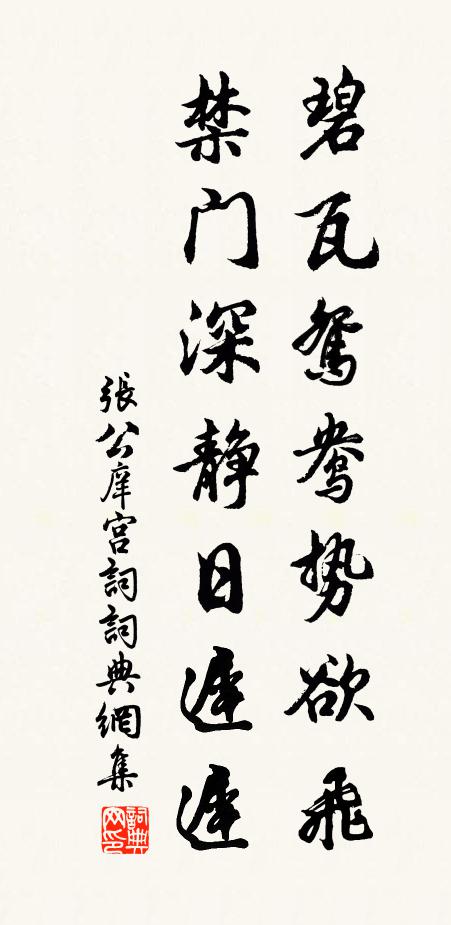 碧瓦鸳鸯势欲飞
禁门深静日迟迟
張公庠宫詞詞典網集
詞典网印